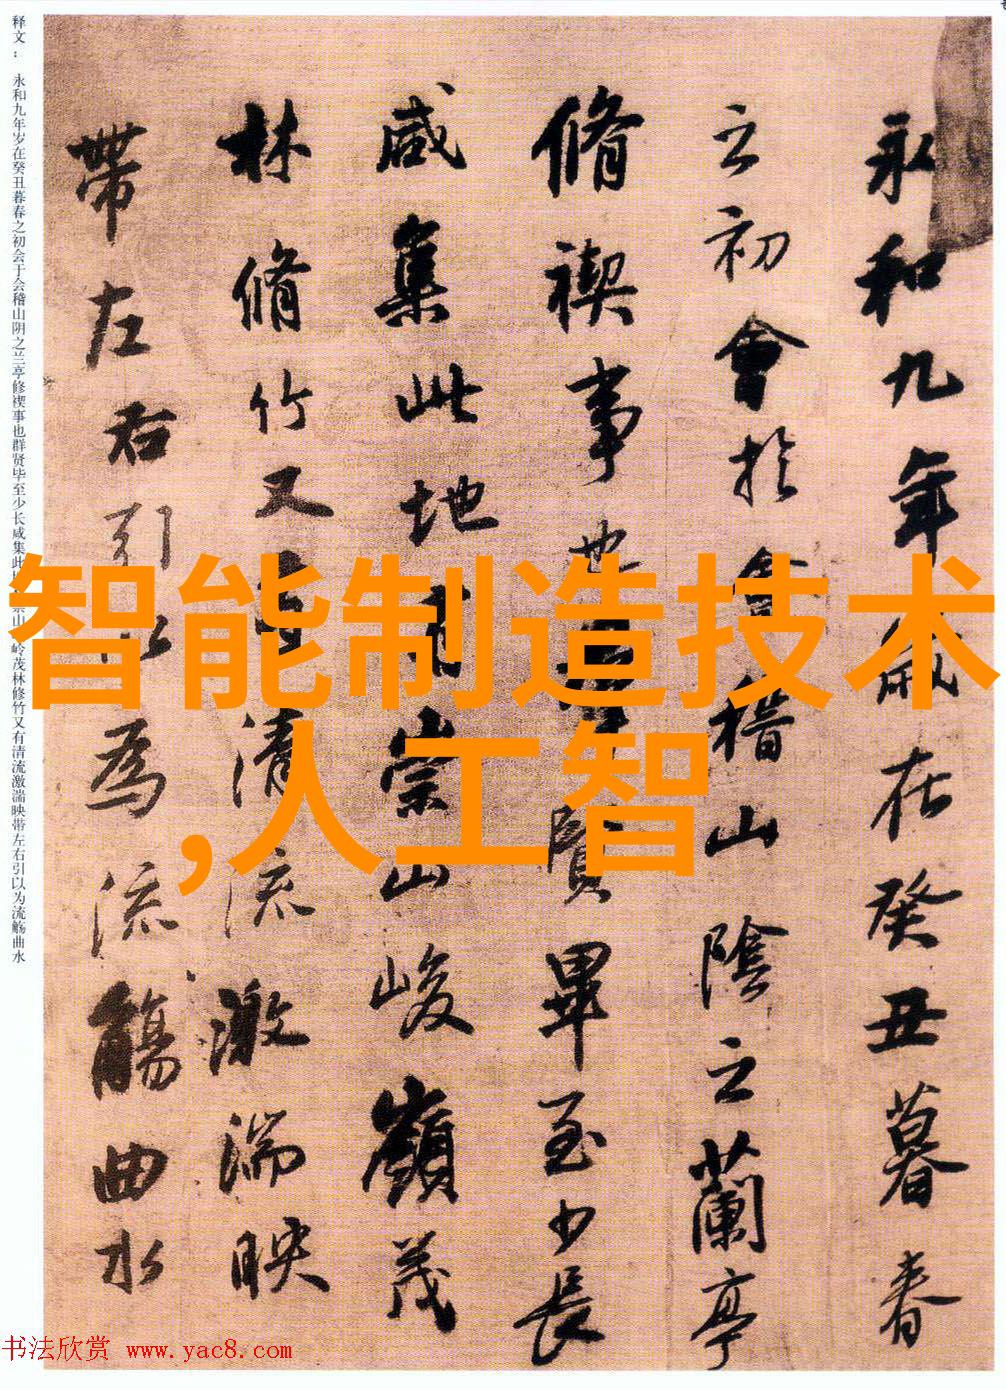 永和九年歲在癸丑暮春
之初會於會稽山陰之蘭亭
脩禊事也羣賢畢至少長
咸集此地有崇山峻嶺茂
林脩竹又有清流激湍映
帶左右引以為流觴曲水
释文：永和九年岁在癸丑暮春之初会于会稽山阴之兰亭修禊事也群贤毕至少长咸集此崇山岭茂林修竹又有清流激湍映带左右引以为流觞曲水
智能制造技术
,人工智
书法欣赏 www.yac8.com